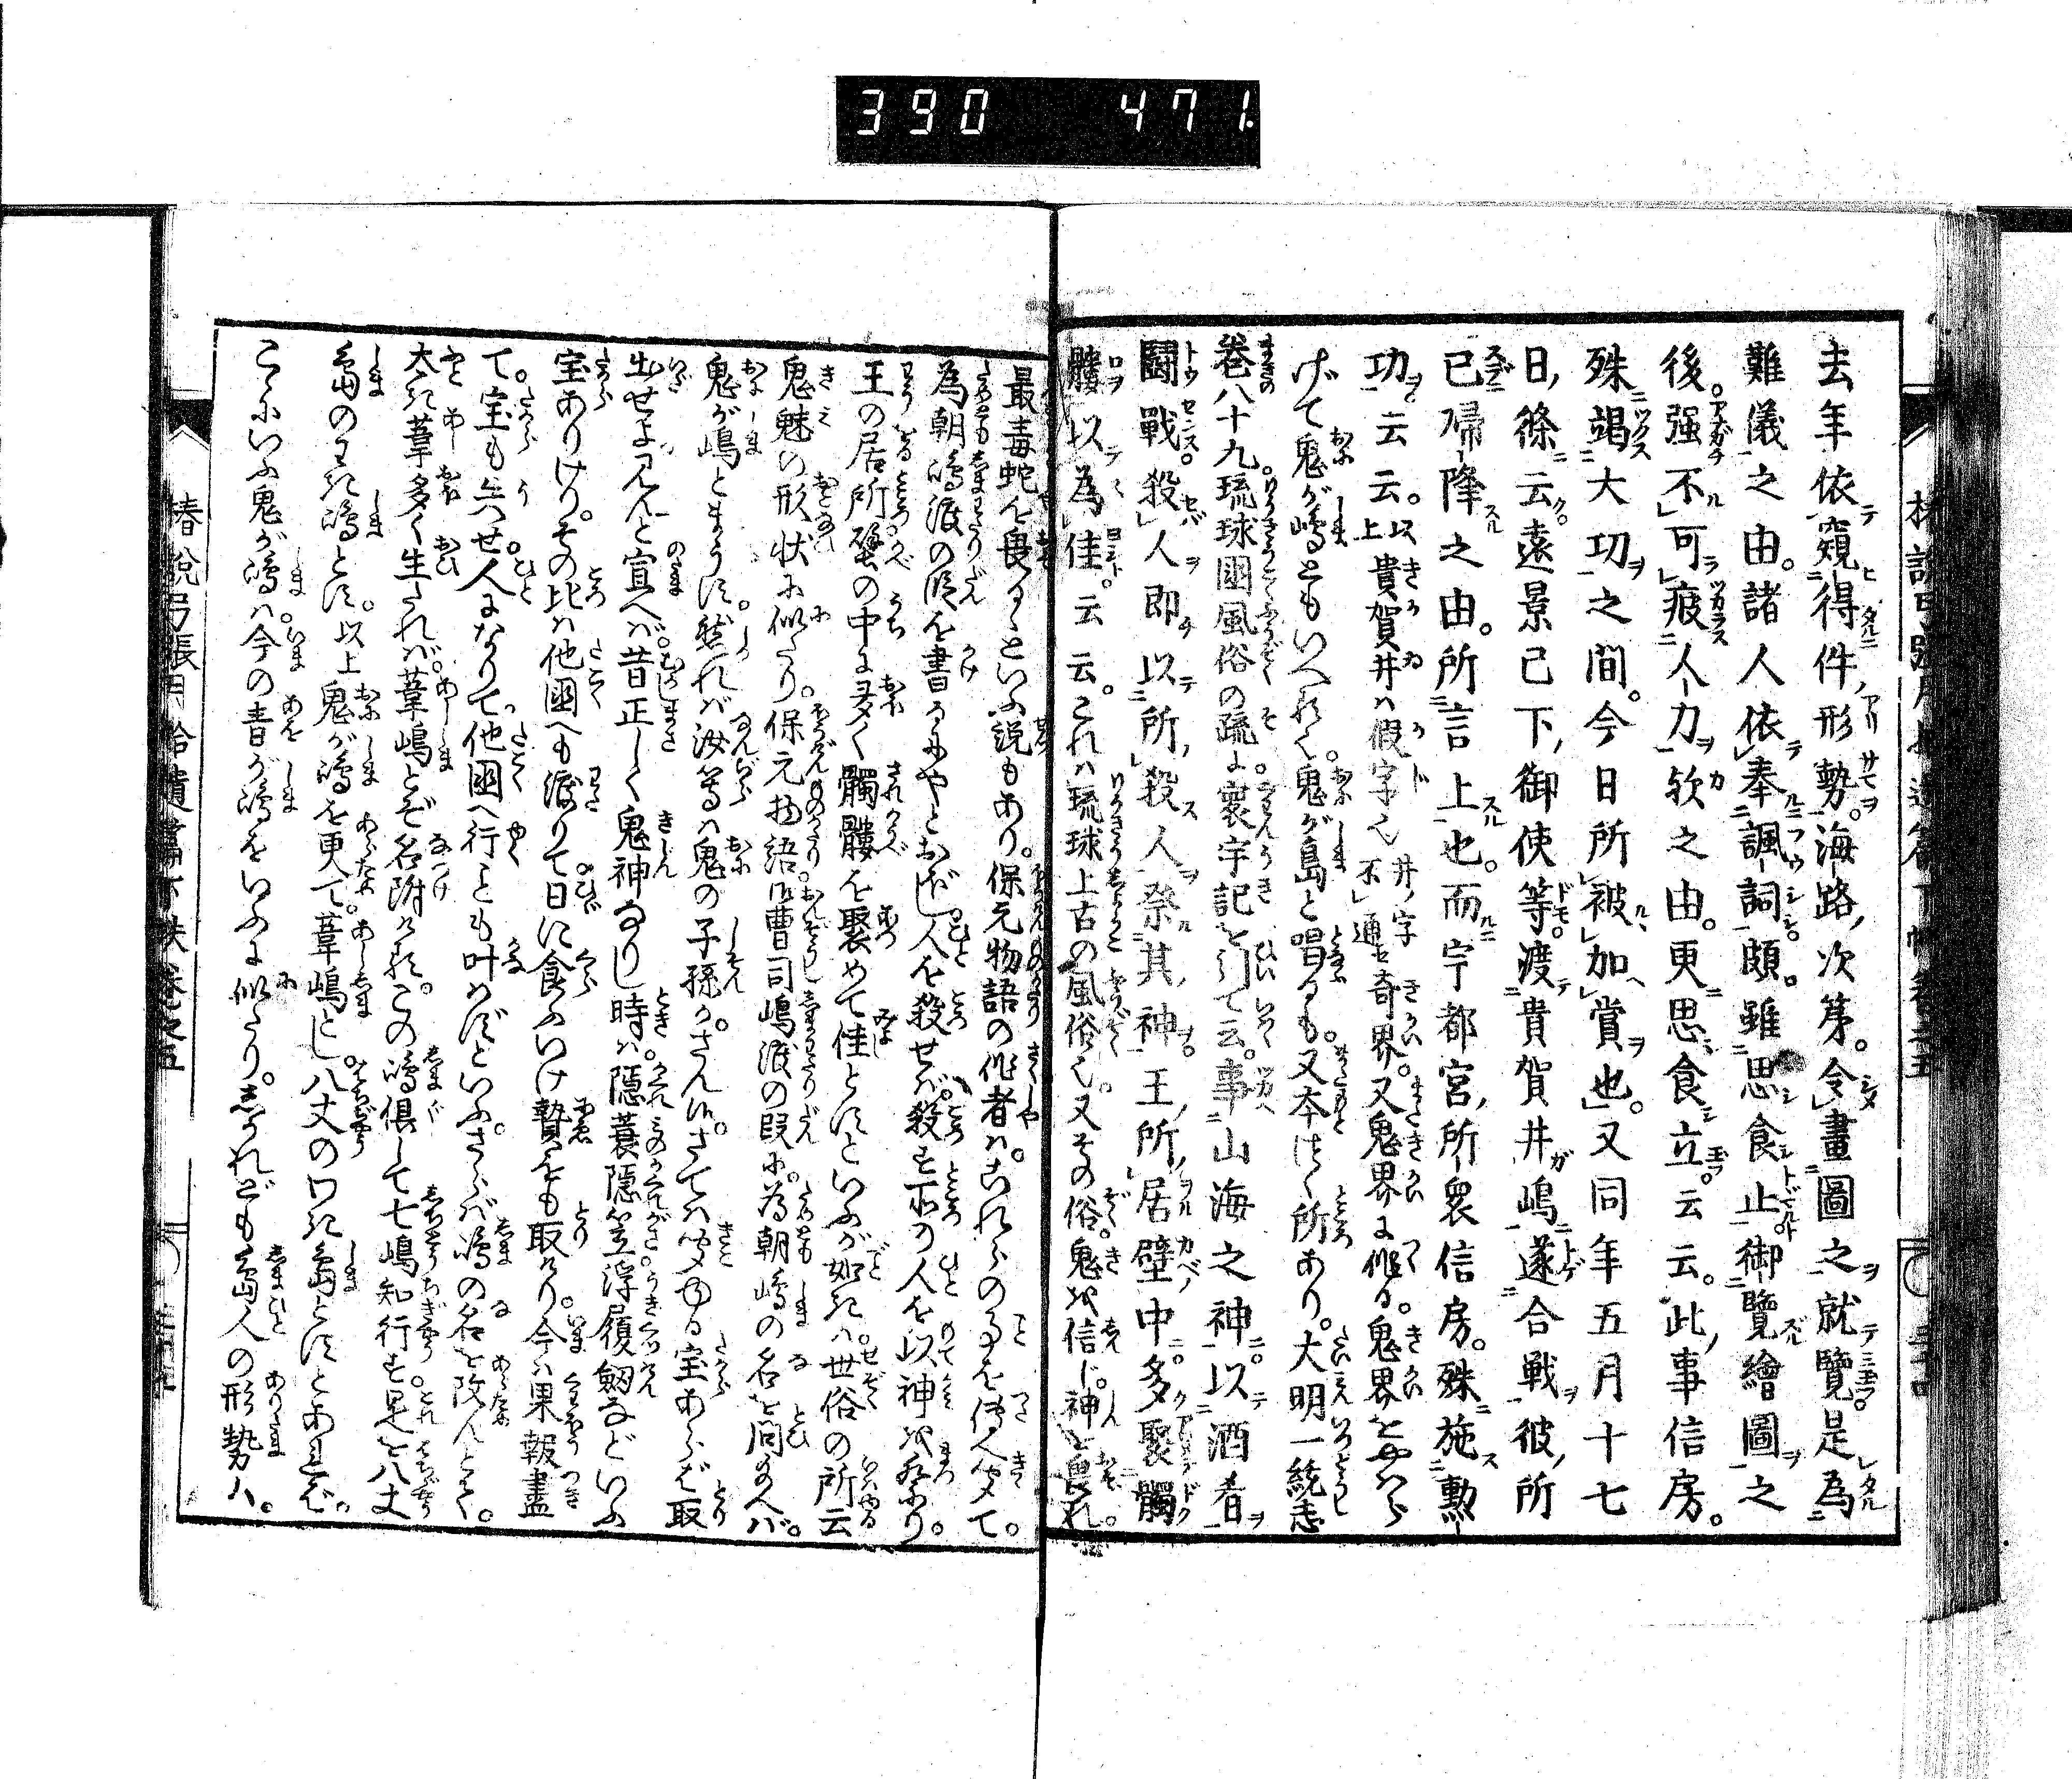 390 471.
去年依窺得件形勢。海路次第。令畫圖之就覽。是為
難儀之由。諸人依奉諷詞。頗雖思食止御覽繪圖之
後。强不可疲人力欤之由。更思食立云云。此事信房。
殊竭大功之間。今日所被加賞也。又同年五月十七
日。條云遠景已下。御使等渡貴賀井嶋遂合戰。彼所
已帰降之由。所言上也。而宇都宮所衆信房。殊施勲
功云云。以上貴賀井ハ假字也井ノ字不通セ奇界。又鬼界に作る。鬼界を
げて鬼が嶋ともいへれど。鬼が島と唱るも。又本づく所あり。大明一統志
巻八十九琉球國風俗の疏に。寰宇記を引て云。事山海之神以酒肴
闘戰殺人即以所殺人祭其神。王所居壁中。多聚髑
髏以為佳。云云。これハ琉球上古の風俗也。又その俗。鬼を信じ。神を畏れ。
最毒蛇を畏るといふ説もあり。保元物語の作者ハ。これらの事を傳へ聞て。
為朝嶋渡の段を書るにやとおぼし人を殺せバ。殺す所の人を以神を祭り。
王の居所壁の中に多く髑髏を聚めて佳とすといふが如きハ。世俗の所云
鬼魅の形状に似たり。保元物語御曹司嶋渡の段に。為朝嶋の名を問給へバ。
鬼が嶋とまうす。然れバ汝等ハ鬼の子孫か。さん候。さてハ聞ゆる宝あらバ取
出せよ見んと宣へバ。昔正しく鬼神なりし時ハ。隱蓑隱笠浮履劔などいふ
宝ありけり。その比ハ他國へも渡りて日に食ふいけ贄をも取けり。今ハ果報盡
て。宝も失せ。人になりて他國へ行ことも叶はずといふ。さらバ嶋の名を改んとて。
太き葦多く生たれバ。葦嶋とぞ名附ける。この嶋倶して七嶋知行す是を八丈
島のわき嶋とす。以上鬼が嶋を更て。葦嶋とし。八丈のわき島とすとあれば。
こゝにいふ鬼が嶋ハ。今の青が嶋をいふに似たり。しかれども島人の形勢ハ。
椿說弓張月拾遺篇下帙卷之五